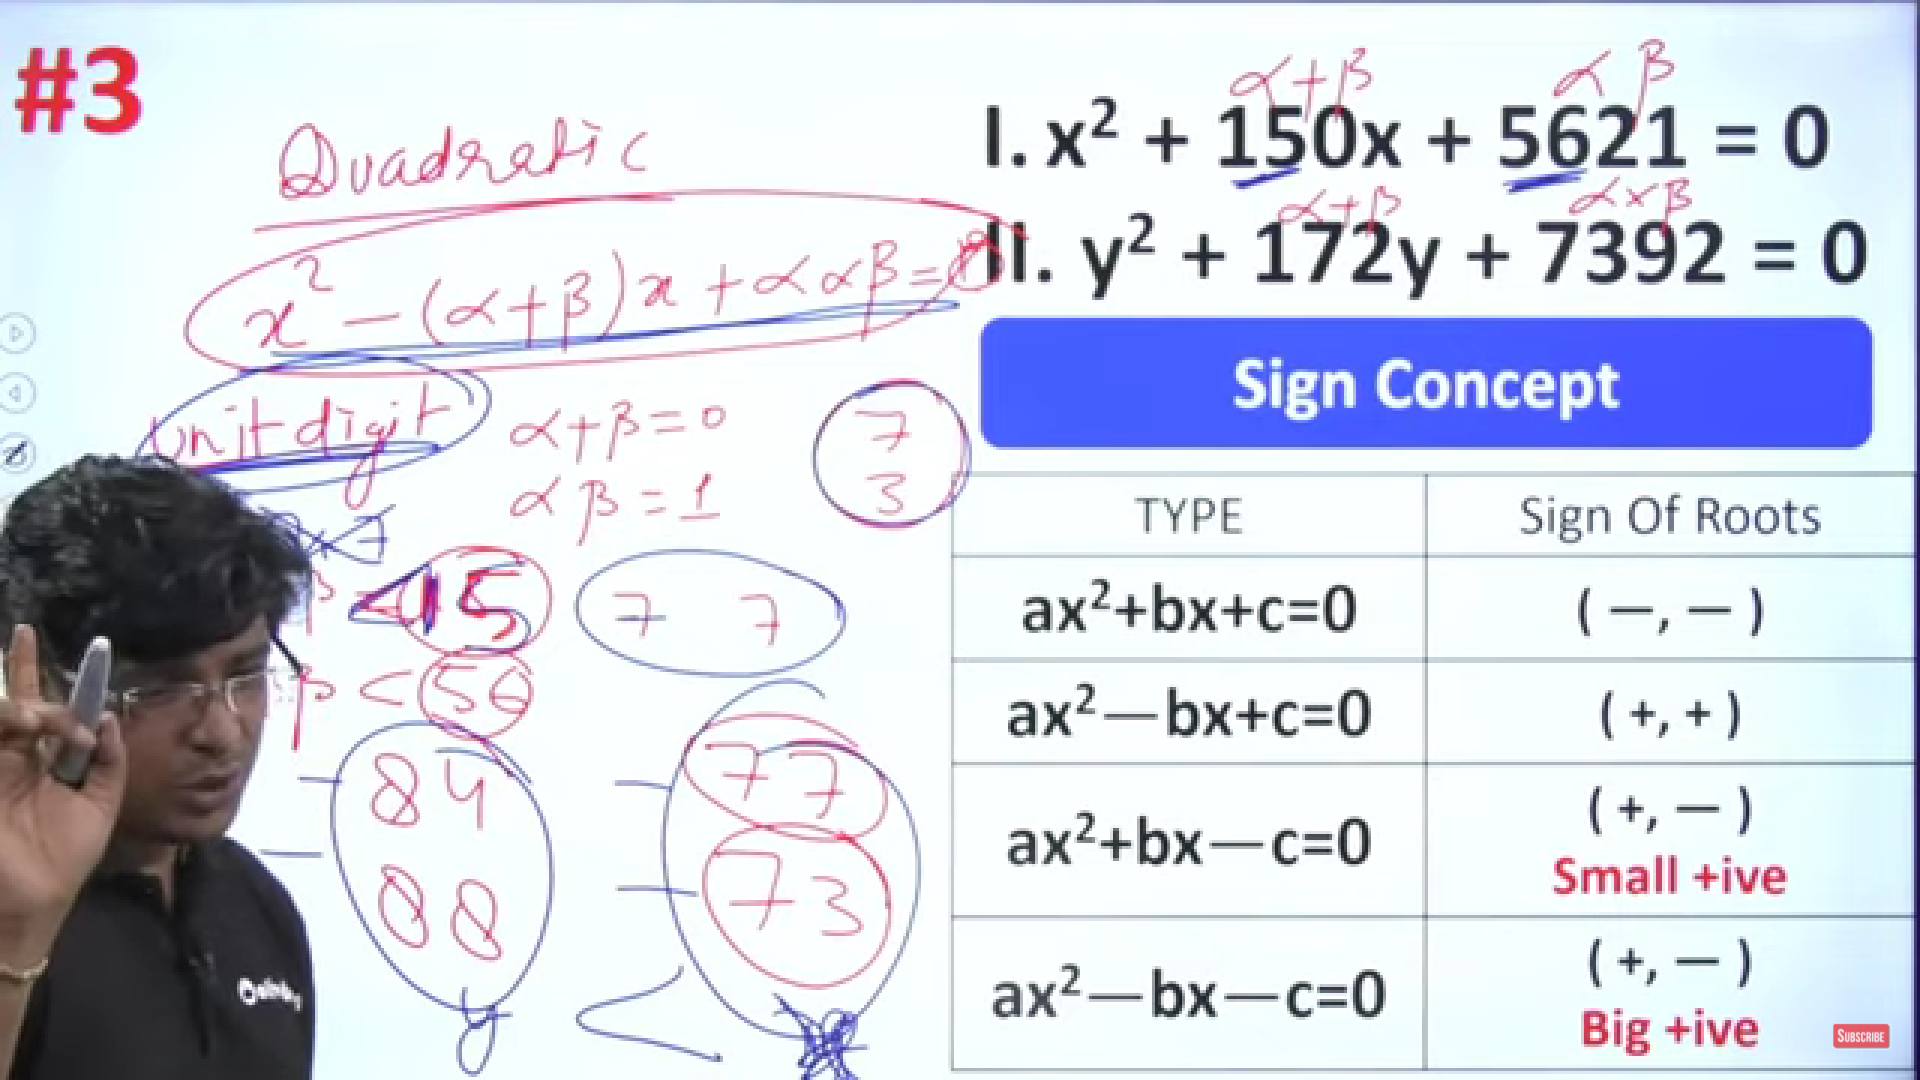 #3
Quadratic
x² − (α+β)x + α αβ = 0
Unit digit
α+β = 0
αβ = 1
7
3
<15
7 7
β < 56
− 84
− 88
y
− 77
− 73
<
α+β αβ
I. x² + 150x + 5621 = 0
α+β α×β
II. y² + 172y + 7392 = 0
Sign Concept
TYPE Sign Of Roots
ax²+bx+c=0 ( —, — )
ax²—bx+c=0 ( +, + )
ax²+bx—c=0 ( +, — )
Small +ive
ax²—bx—c=0 ( +, — )
Big +ive
SUBSCRIBE